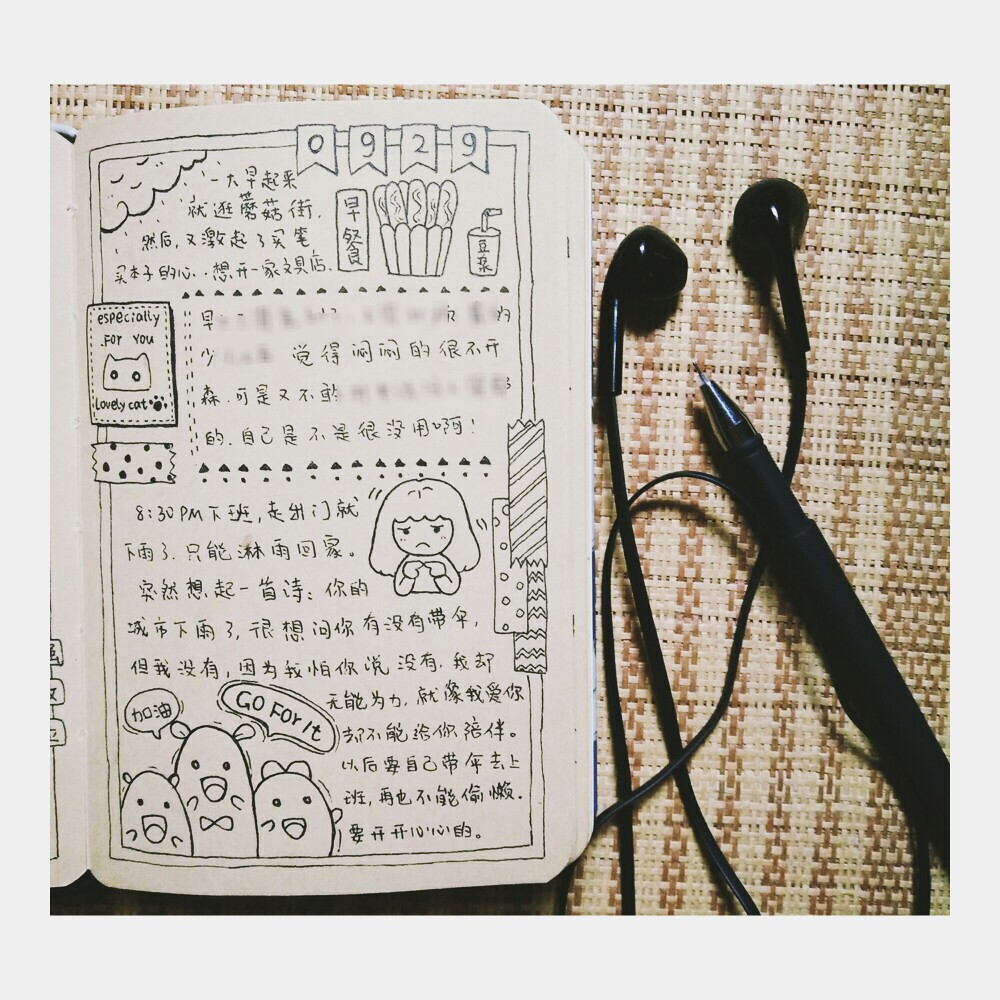 0929
一大早起来
就逛蘑菇街.
然后,又激起了买笔
买本子的心..想开一家文具店.
早餐
豆浆
especially
FOR YOU
Lovely cat
早
的
少 觉得闷闷的很不开
森.可是又不敢
的.自己是不是很没用啊!
8:30PM下班,走出门就
下雨了.只能淋雨回家。
突然想起一首诗:你的
城市下雨了,很想问你有没有带伞,
但我没有,因为我怕你说没有.我却
无能为力,就像我爱你
却不能给你陪伴。
以后要自己带伞去上
班,再也不能偷懒.
要开开心心的。
加油
GO FOR It